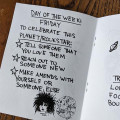 DAY OF THE WEEK:
FRIDAY
TO CELEBRATE THIS
PLANET/ROCKSTAR:
TELL SOMEONE THAT
YOU LOVE THEM
REACH OUT TO
SOMEONE NEW
MAKE AMENDS WITH
YOURSELF OR
SOMEONE ELSE